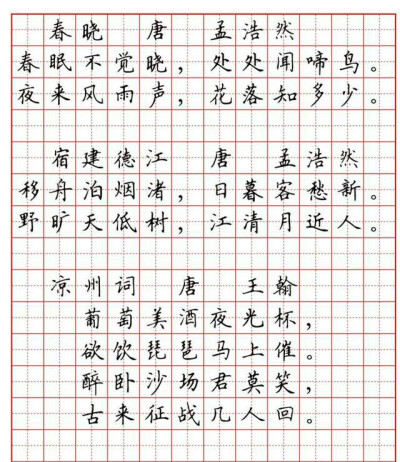 春晓 唐 孟浩然
春眠不觉晓，处处闻啼鸟。
夜来风雨声，花落知多少。
宿建德江 唐 孟浩然
移舟泊烟渚，日暮客愁新。
野旷天低树，江清月近人。
凉州词 唐 王翰
葡萄美酒夜光杯，
欲饮琵琶马上催。
醉卧沙场君莫笑，
古来征战几人回。